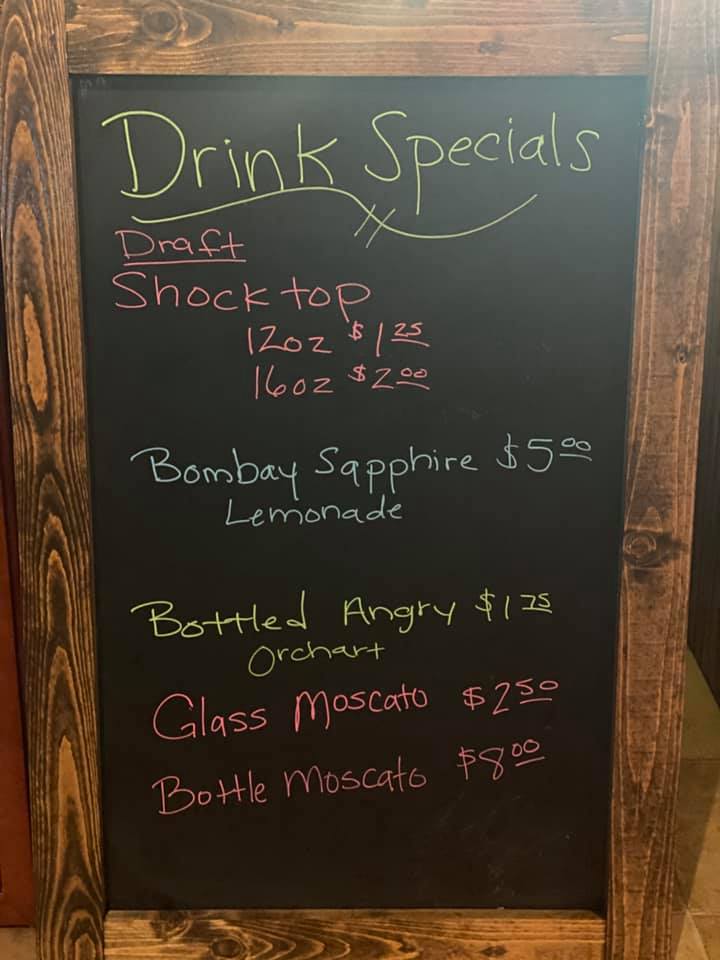 Drink Specials
Draft
Shock top
12oz $1.25
16oz $2.00
Bombay Sapphire $5.00
Lemonade
Bottled Angry $1.75
Orchart
Glass Moscato $2.50
Bottle Moscato $8.00